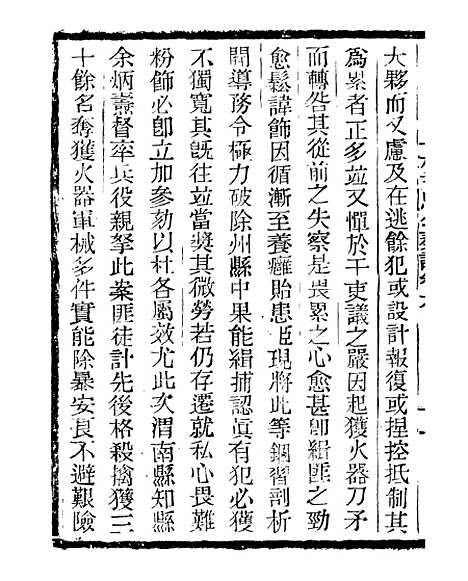 大夥而又慮及在逃餘犯或設計報復或捏控抵制其
爲累者正多並又憚於干吏議之嚴因起獲火器刀矛
而轉咎其從前之失察是畏累之心愈甚卽緝匪之勁
愈鬆諱飾因循漸至養癰貽患臣現將此等錮習剖析
開導務令極力破除州縣中果能緝捕認眞有犯必獲
不獨寬其旣往並當獎其微勞若仍存遷就私心畏難
粉飾必卽立加參劾以杜各屬效尤此次渭南縣知縣
余炳燾督率兵役親拏此案匪徒計先後格殺擒獲三
十餘名奪獲火器軍械多件實能除暴安良不避艱險